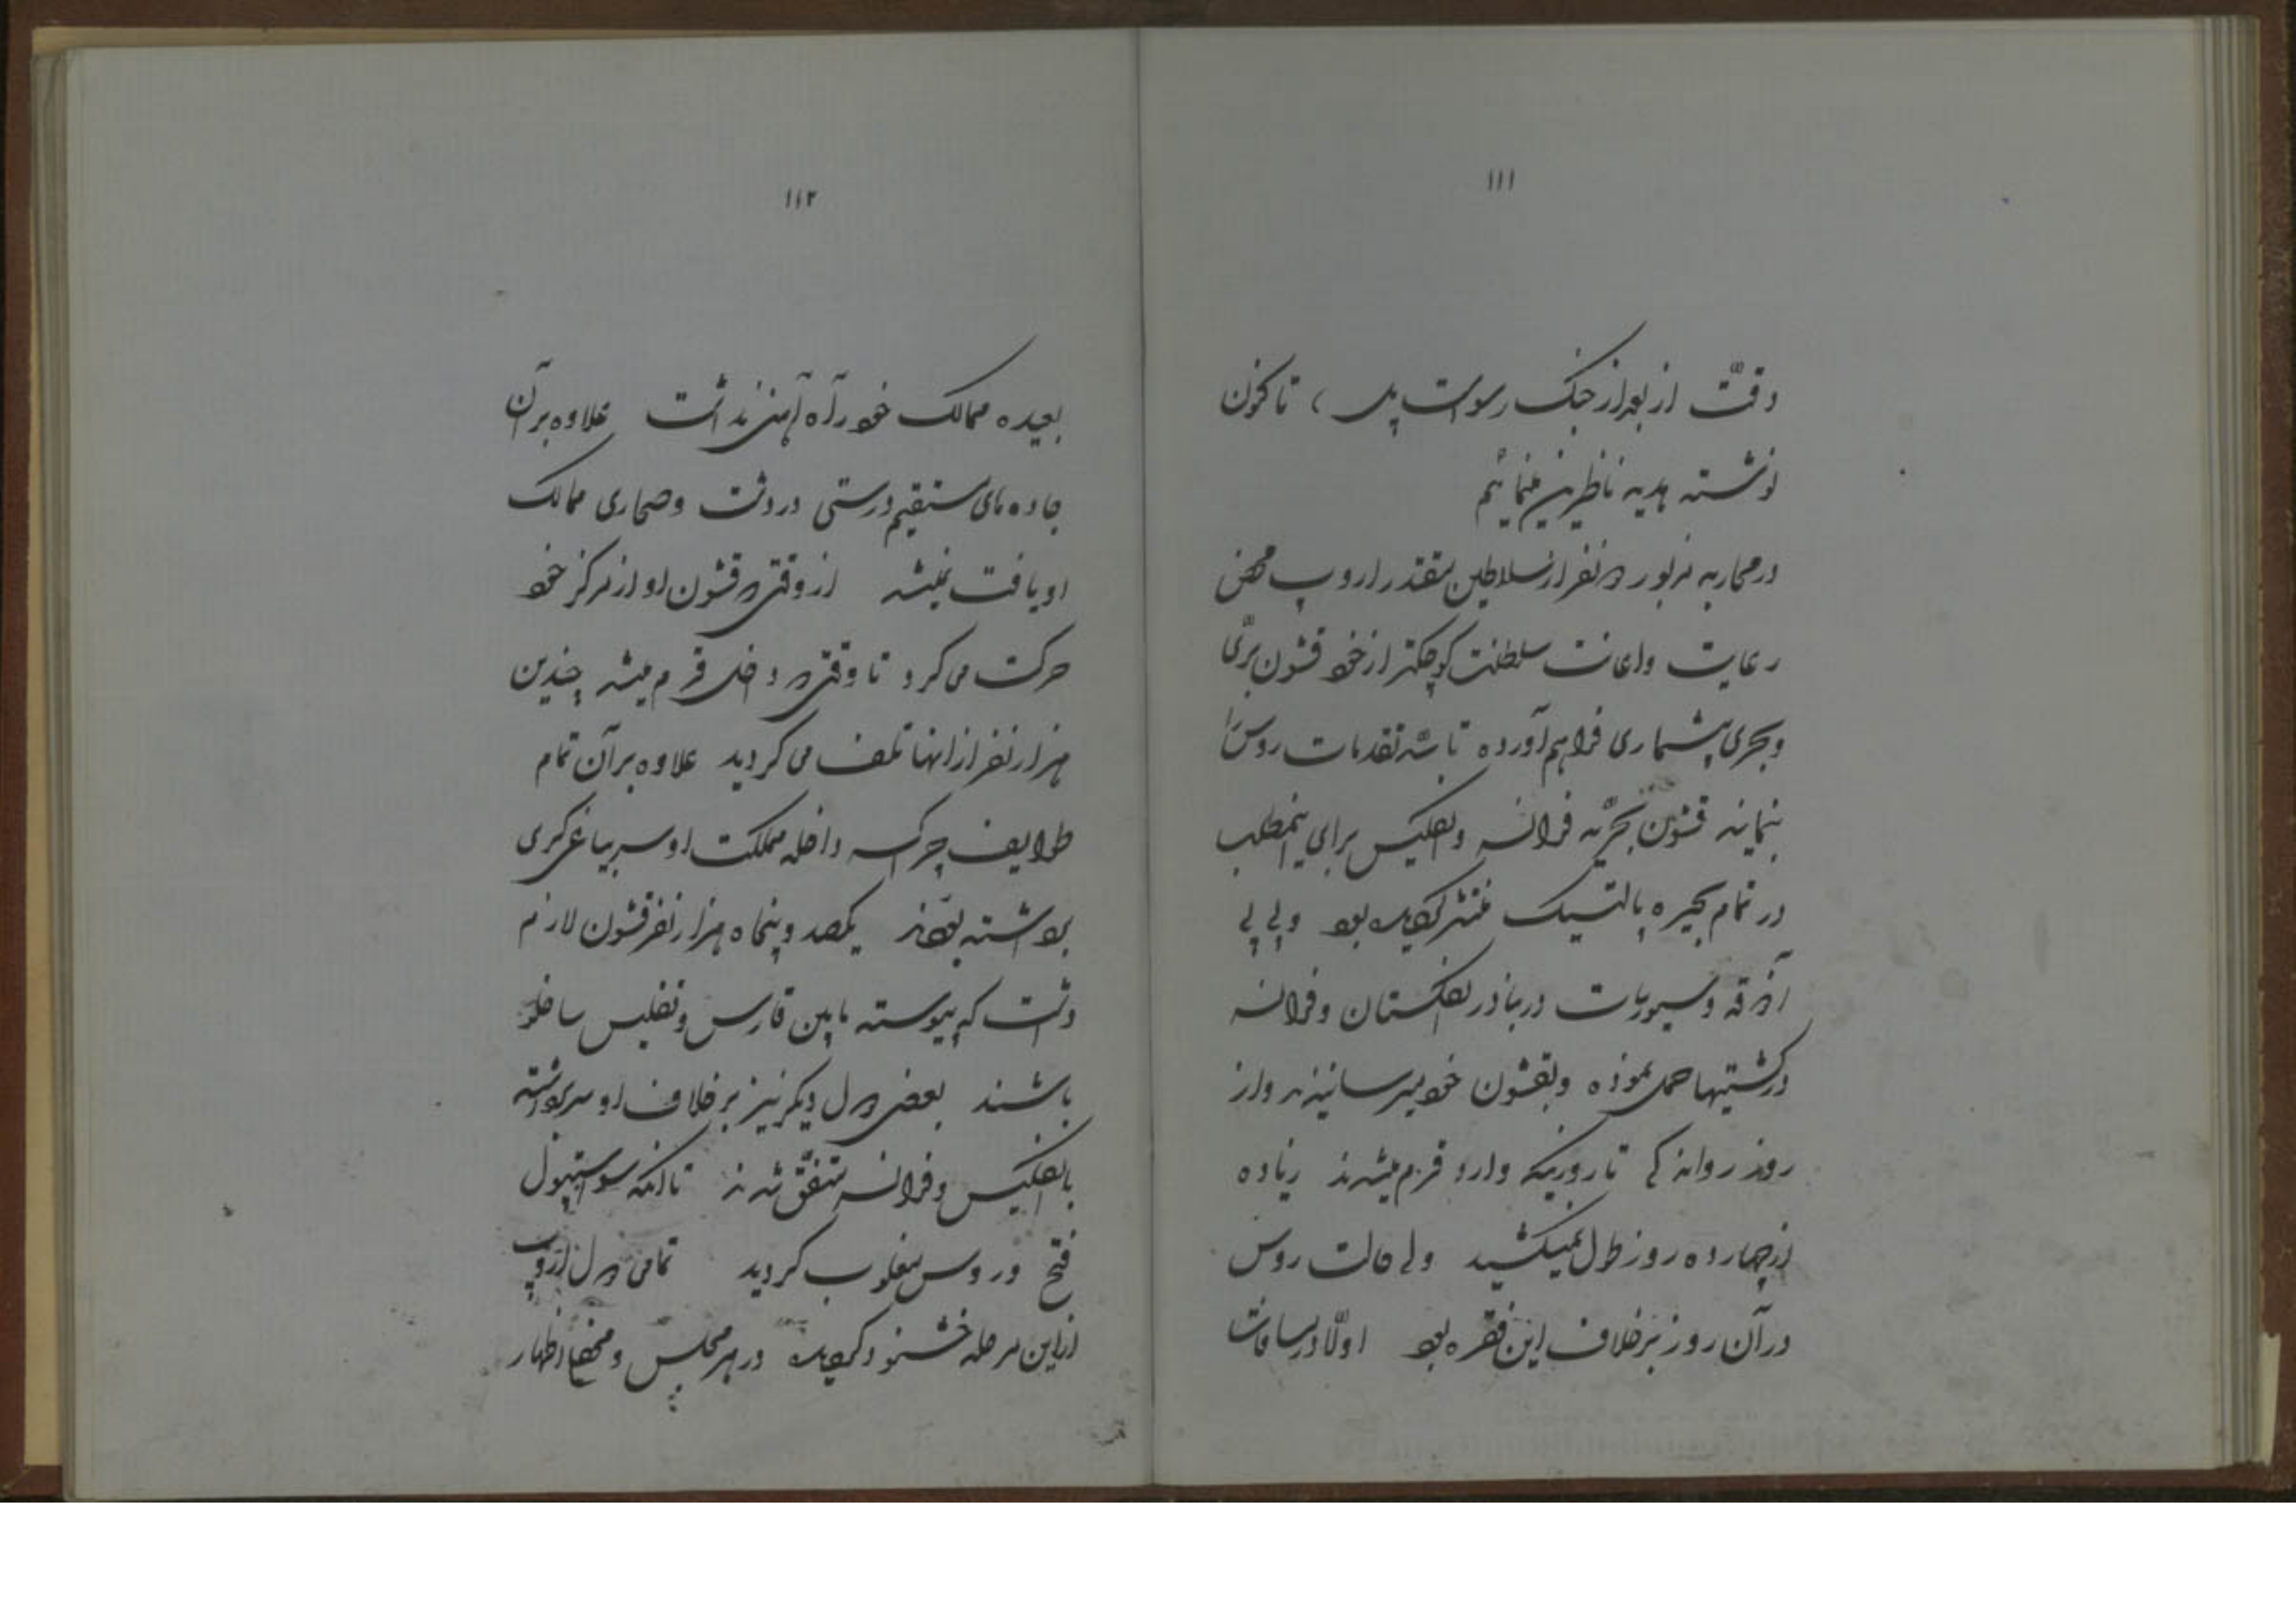 ۱۱۱
دقّت از بعد از جنک سواست پل ، تا کنون
نوشته هدیه ناظرین مینمائیم
در محاربه مزبور دو نفر از سلاطین مقتدر اروپ محض
رعایت و اعانت سلطنت کوچکتر از خود قشون برّی
و بحری بیشماری فراهم آورده تا سدّ تقدمات روس را
بنمایند قشون بحرّیه فرانسه و انکلیس برای اینمطلب
در تمام بحیره بالتیک منتشر کردیده بود و پی پی
آذوقه و سیورسات در بنادر انکلستان و فرانسه
در کشتیها حمل نموده و بقشون خود میرسانیدند و از
روز روانه کی تا روزیکه وارد قرم میشدند زیاده
از چهارده روز طول نمیکشید ولی حالت روس
در آن روز بر خلاف این فقره بود اولّا در مسافات
۱۱۲
بعیده ممالک خود راه آهن نداشت علاوه بر آن
جاده های مستقیم درستی در دشت و صحاری ممالک
او یافت نمیشد از وقتی که قشون او از مرکز خود
حرکت می کرد تا وقتی که داخل قرم میشد چندین
هزار نفر از انها تلف می کردید علاوه بر آن تمام
طوایف چرکسه داخله مملکت او سر بیاغی کری
برداشته بودند یکصد و پنجاه هزار نفر قشون لازم
داشت که پیوسته مابین قارس و تفلیس ساخلو
باشند بعضی دول دیکر نیز بر خلاف او سر برداشته
با انکلیس و فرانسه متفّق شدند تا آنکه سواستپول
فتح و روس مغلوب کردید تمامی دول اروپ
از این مرحله خشنود کردیده در هر مجلس و محفل اظهار